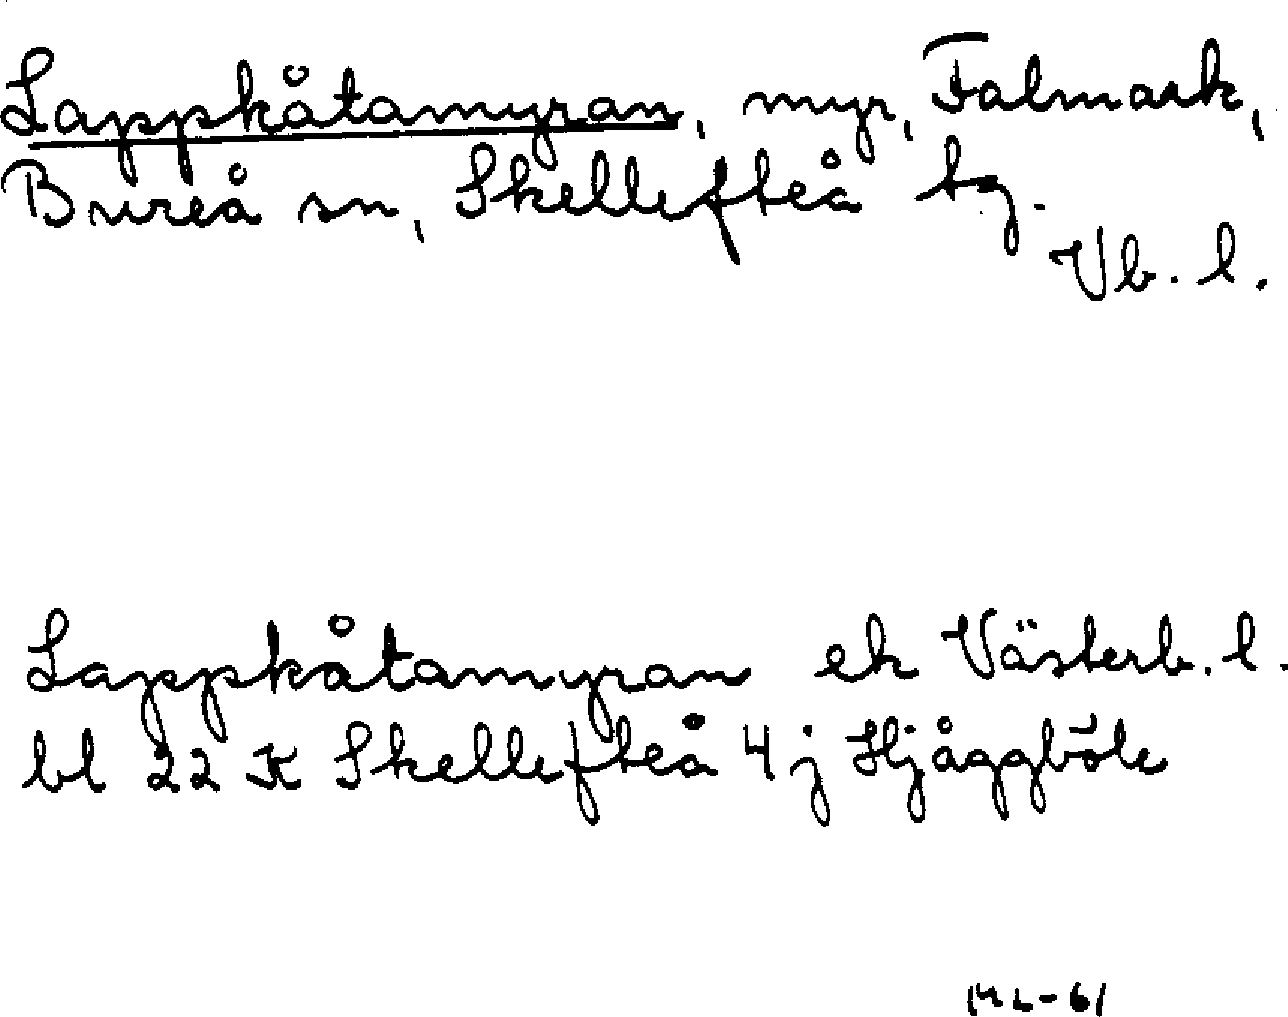 Lappkåtamyran, myr, Falmark,
Bureå sn, Skellefteå tg.
Vb. l.
Lappkåtamyran ek Västerb. l.
bl 22 K Skellefteå 4 j Hjåggböle